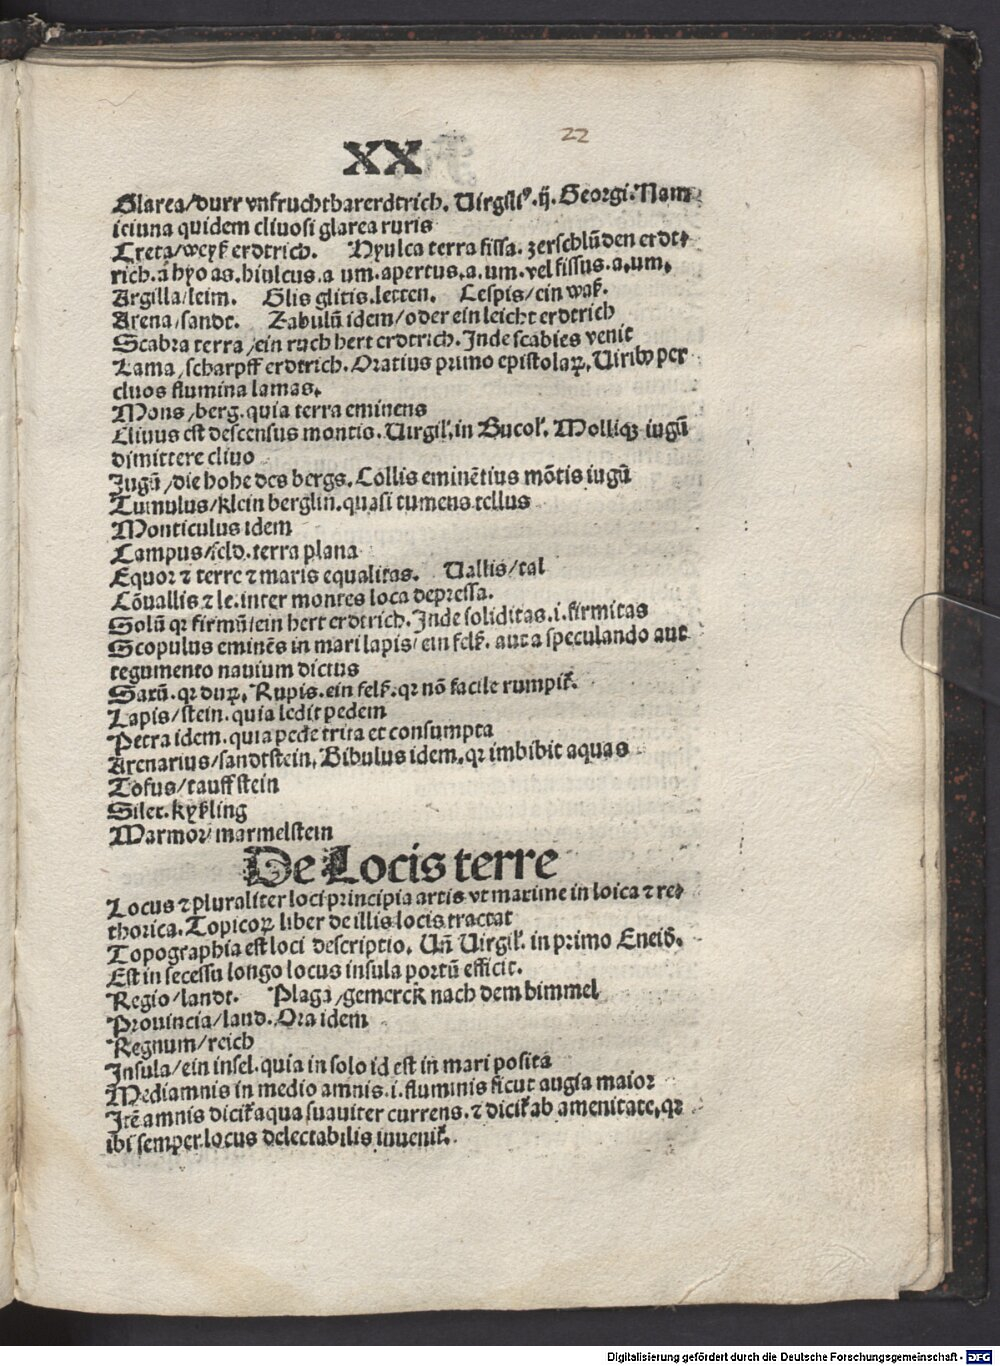 22
XX
Glarea/durr vnfruchtbarerdtrich. Uirgiliꝰ.ij. Georgi. Nam
ieiuna quidem cliuosi glarea ruris
Creta/weyß erdtrich. Hyulca terra fissa. zerschlūden erdt⸗
rich. ā hyo as. hiulcus.a um. apertus.a.um. vel fissus.a.um.
Argilla/leim. Glis glitis. letten. Cespis/ein waß.
Arena/sandt. Zabulū idem/oder ein leicht erdtrich
Scabra terra/ein ruch hert erdtrich. Inde scabies venit
Lama/scharpff erdtrich. Oratius primo epistolaꝝ. Uiribꝰ per
cliuos flumina lamas.
Mons/berg. quia terra eminens
Cliuus est descensus montis. Uirgil'. in Bucol'. Molliqꝫ iugū
dimittere cliuo
Iugū/die hohe des bergs. Collis eminētius mōtis iugū
Tumulus/klein berglin. quasi tumens tellus
Monticulus idem
Campus/feld. terra plana
Equor ⁊ terre ⁊ maris equalitas. Uallis/tal
Cōuallis ⁊ le. inter montes loca depressa.
Solū qꝛ firmū/ein hert erdtrich. Inde soliditas.i. firmitas
Scopulus eminēs in mari lapis/ein felß. aut a speculando aut
tegumento nauium dictus
Saxū. qꝛ duꝝ. Rupis. ein felß. qꝛ nō facile rumpit᷑.
Lapis/stein. quia ledit pedem
Petra idem. quia pede trita et consumpta
Arenarius/sandtstein. Bibulus idem. qꝛ imbibit aquas
Tofus/tauffstein
Silex. kyßling
Marmor/marmelstein
De Locis terre
Locus ⁊ pluraliter loci principia artis vt maxime in loica ⁊ re⸗
thorica. Topicoꝝ liber de illis locis tractat
Topographia est loci descriptio. Uñ Uirgil'. in primo Eneid̄.
Est in secessu longo locus insula portū efficit.
Regio/landt. Plaga/gemerck nach dem himmel
Prouincia/land. Ora idem
Regnum/reich
Insula/ein insel. quia in solo id est in mari posita
Mediamnis in medio amnis.i. fluminis sicut augia maior
Itē amnis dicit᷑ aqua suauiter currens. ⁊ dicit᷑ ab amenitate. qꝛ
ibi semper locus delectabilis inuenit᷑.
Digitalisierung gefördert durch die Deutsche Forschungsgemeinschaft - DFG